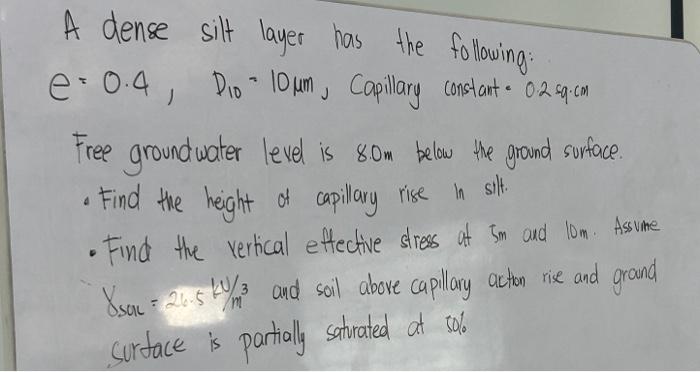 A dense silt layer has the following:
e = 0.4, D10 = 10 μm, Capillary constant = 0.2 sq.cm
Free groundwater level is 8.0m below the ground surface.
• Find the height of capillary rise in silt.
• Find the vertical effective stress at 5m and 10m. Assume
γsoil = 26.5 kN/m³ and soil above capillary action rise and ground
surface is partially saturated at 50%